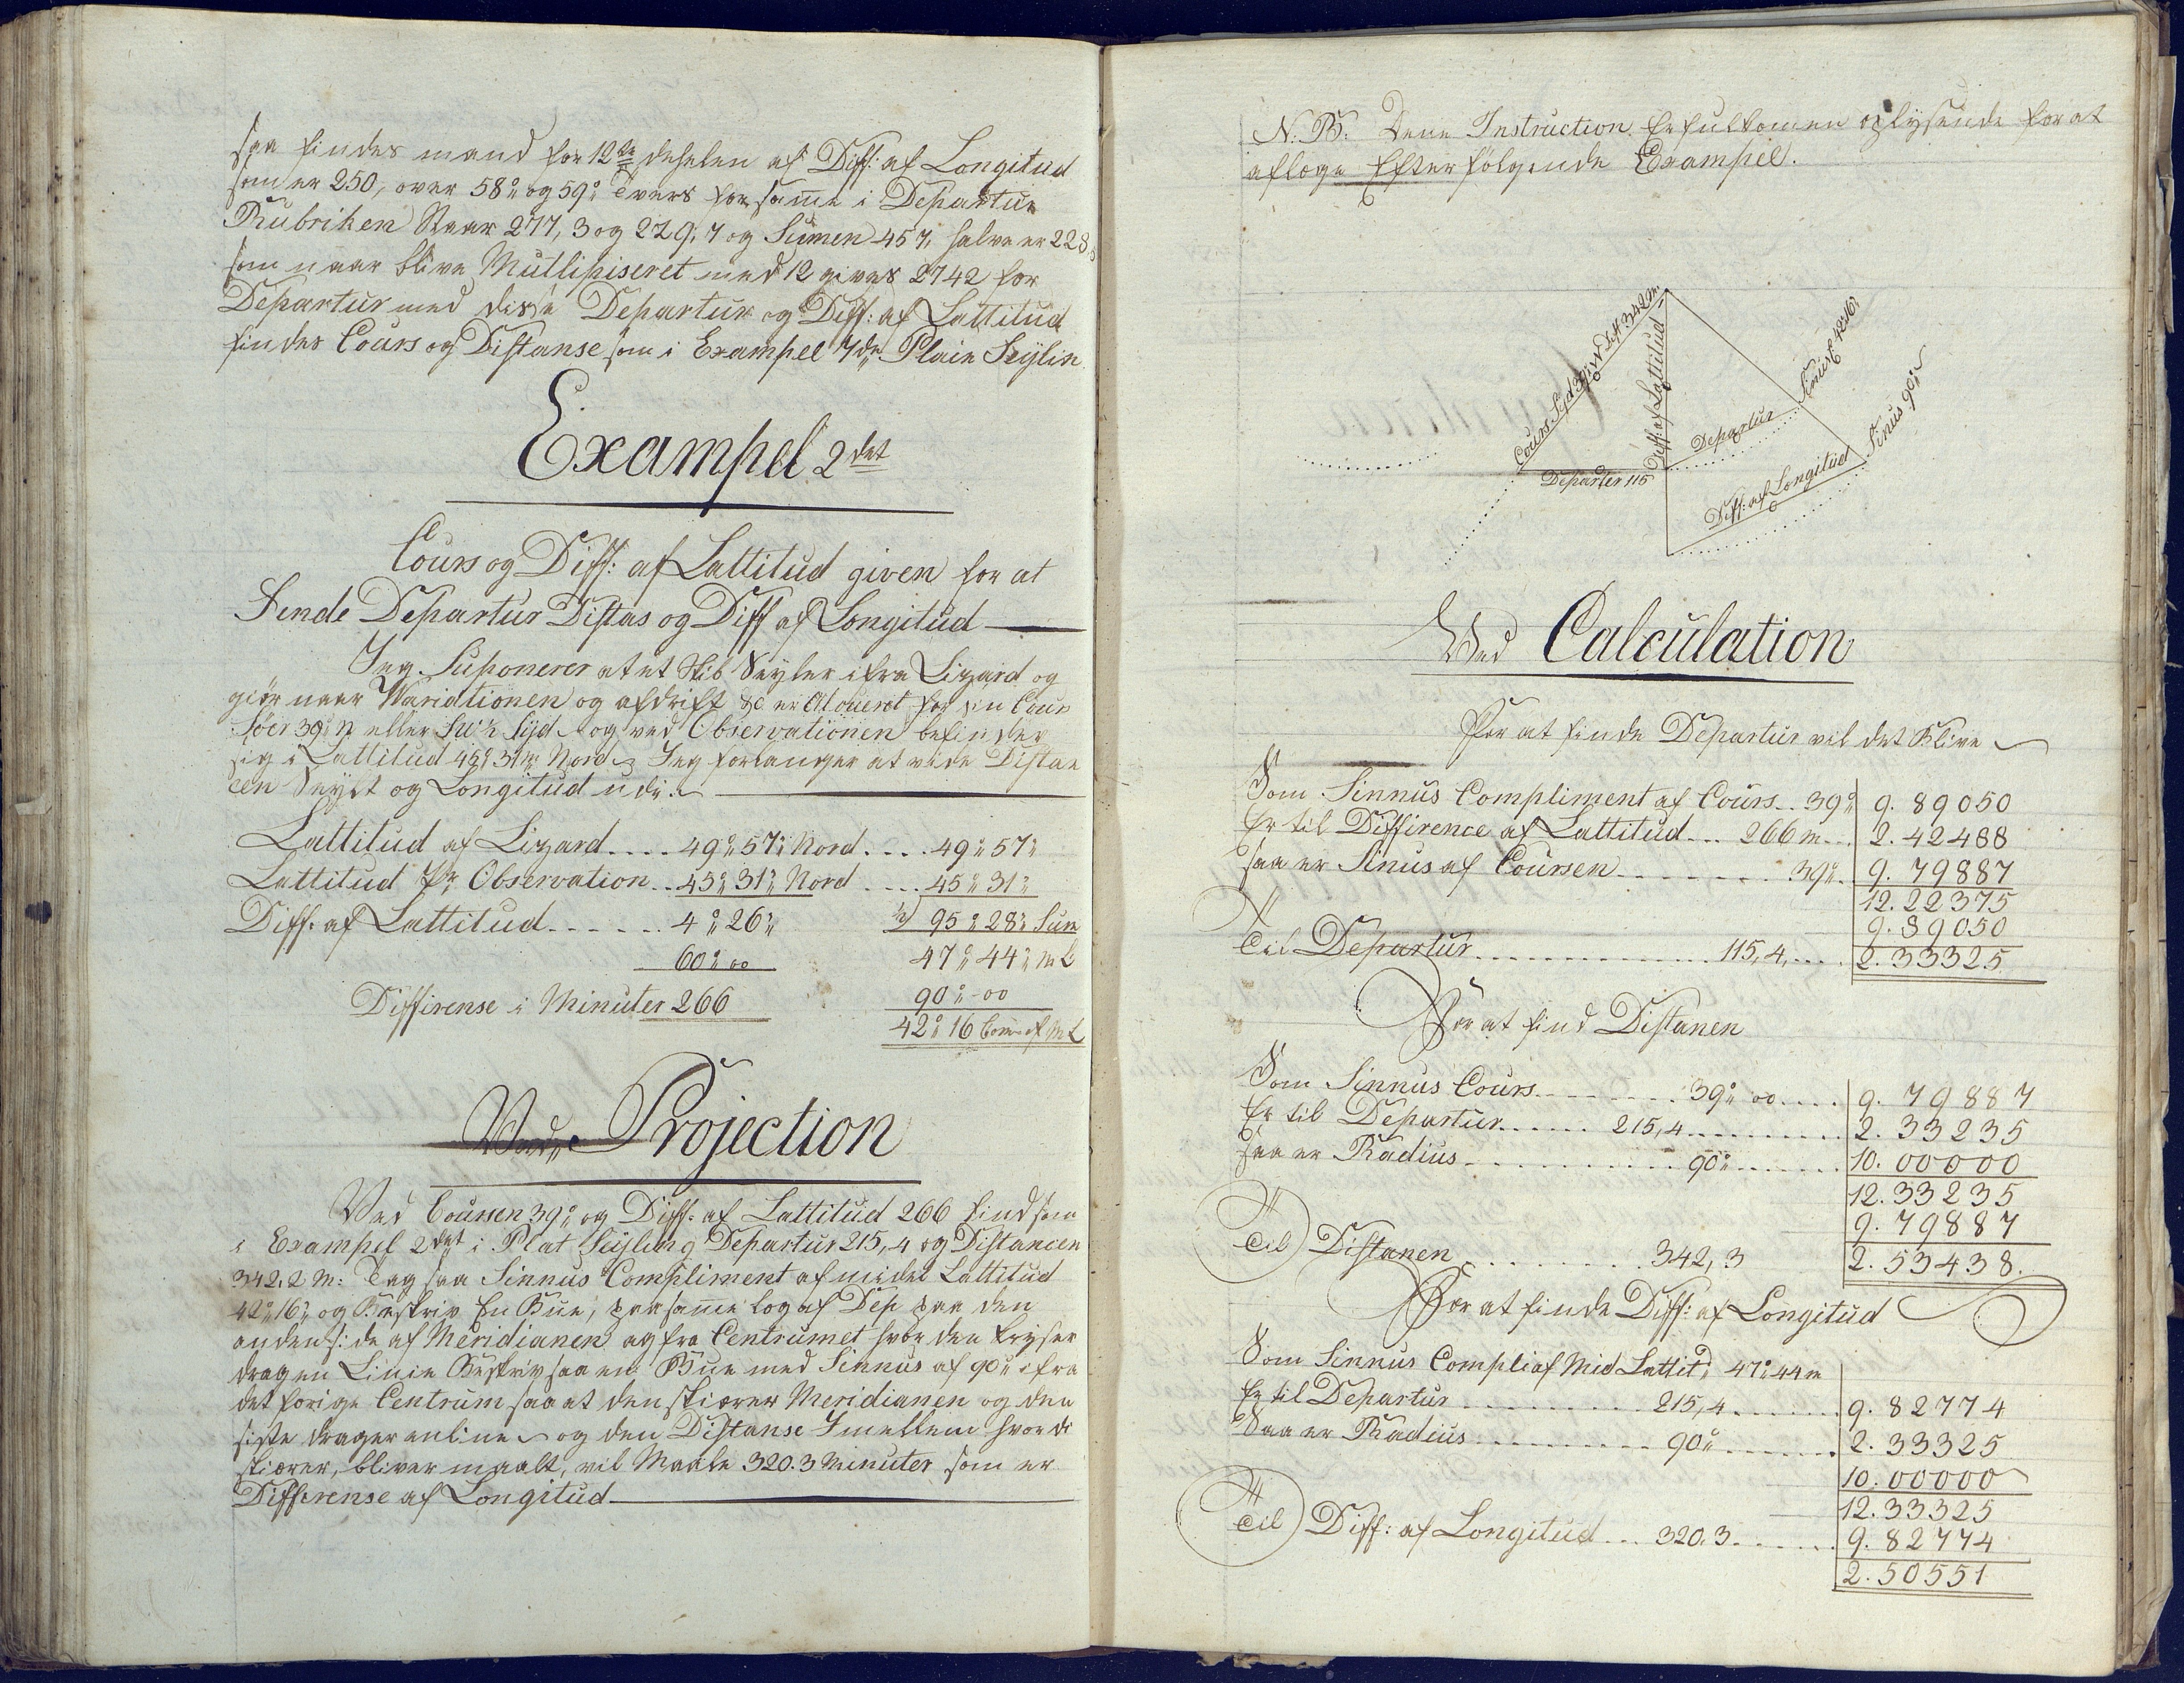 saa findes mand for 12te dehelen af Diff: af Longitud
som er 250, over 58° og 59° tvers for samme i Departur
Rubriken Staar 277,3 og 229,7 og Sumen 457, halve er 228,5
som naar blive Mullipiseret med 12 gives 2742 for
Departur med disse Departur og Diff: af Lattitud
findes Cours og Distanse som i Exampel 7de Plain Seylin
Exampel 2det
Cours og Diff: af Lattitud given for at
Finde Departur Distas og Diff af Longitud
Jeg Suponerer at et Skib Seyler ifra Lizard og
giør naar Variationen og afdrift &c er Aloueret for sin Cours
39° eller Syd og ved Observationen befinder
sig i Lattitud 45° 31m Nord Jeg forlanger at vide Distan
cen Seylt og Longitud udi
Lattitud af Lizard .... 49° 57' Nord .... 49° 57'
Lattitud Pr Observation .. 45° 31' Nord .... 45° 31'
Diff: af Lattitud ...... 4° 26' ½) 95° 28' Sum
60° 00 47° 44' m L
Differense i Minuter 266 90° - 00
42° 16 Com- af m L
Ved Projection
Ved Coursen 39° og Diff: af Lattitud 266 find som
i Exampel 2det i Plat Seyling Departur 215,4 og Distancen
342,2 M: Tag saa Sinnus Compliment af midel Lattitud
42° 16' og Beskriv En Bue, paa samme log af Dep paa den
anden side af Meridianen og fra Centrumet hvor den kryser
dragen Linie Beskriv saa en Bue med Sinnus af 90° ifra
det forige Centrum saa at den skierer Meridianen og den
siste drager en line og den Distanse Imellem hvor de
skierer, bliver maalt, vil Maale 320.3 Minuter som er
Differense af Longitud
N. B. Dene Instruction Er fulkomen oplysende for at
afloge Efterfølgende Exampel.
Cours Syd 39° W Dist 342 m.
Diff: af Lattitud
Departur
Sinus C 42° 16'
Sinus 90°
Departer 115
Diff: af Longitud
Ved Calculation
For at finde Departur vil det Blive
Som Sinnus Compliment af Cours .. 39° 9. 89050
Er til Diffirence af Lattitud ... 266 m .. 2. 42488
saa er Sinus af Coursen ....... 39° . 9. 79887
12. 22375
9. 89050
til Departur ............ 115,4, .... 2. 33325
For at find Distanen
Som Sinnus Cours ....... 39° 00 .... 9. 79887
Er til Departur ...... 215,4 ......... 2. 33235
saa er Radius .......... 90° ...... 10. 00000
12. 33235
9. 79887
til Distanen ......... 342,3 2. 53438.
For at finde Diff: af Longitud
Som Sinnus Compli af Mid Lattitd 47° 44 m
Er til Departur .......... 215,4 ....... 9. 82774
Saa er Radius .......... 90° ....... 2. 33325
10. 00000
12. 33325
til Diff: af Longitud ... 320.3 ...... 9. 82774
2. 50551